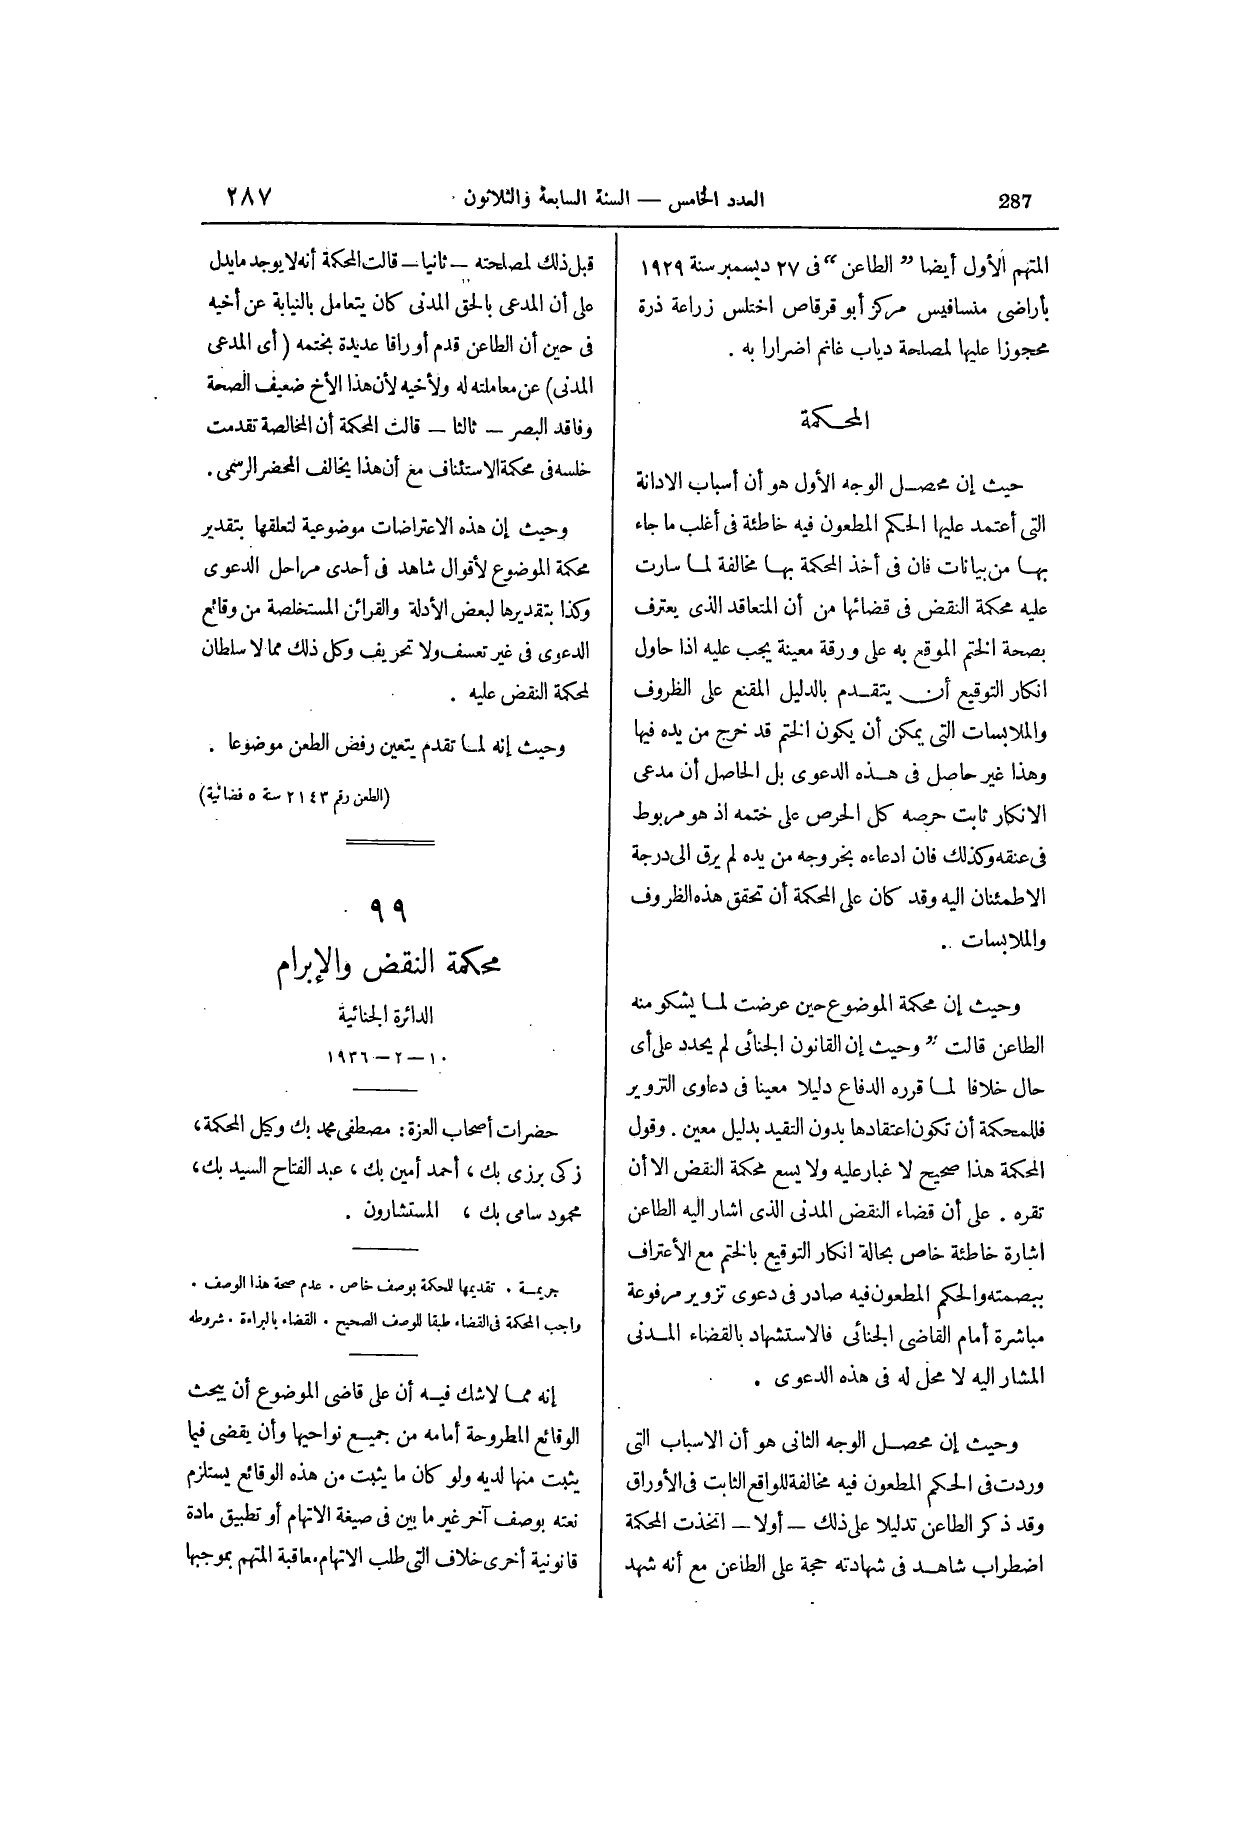 287
العدد الخامس — السنة السابعة والثلاثون
٢٨٧
المتهم الأول أيضا " الطاعن " فى ٢٧ ديسمبر سنة ١٩٢٩
بأراضى منسافيس مركز أبو قرقاص اختلس زراعة ذرة
محجوزا عليها لمصلحة دياب غانم اضرارا به .
المحكمة
حيث إن محصل الوجه الأول هو أن أسباب الادانة
التى أعتمد عليها الحكم المطعون فيه خاطئة فى أغلب ما جاء
بها من بيانات فان فى أخذ المحكمة بها مخالفة لما سارت
عليه محكمة النقض فى قضائها من أن المتعاقد الذى يعترف
بصحة الختم الموقع به على ورقة معينة يجب عليه اذا حاول
انكار التوقيع أن يتقدم بالدليل المقنع على الظروف
والملابسات التى يمكن أن يكون الختم قد خرج من يده فيها
وهذا غير حاصل فى هذه الدعوى بل الحاصل أن مدعى
الانكار ثابت حرصه كل الحرص على ختمه اذ هو مربوط
فى عنقه وكذلك فان ادعاءه بخروجه من يده لم يرق الى درجة
الاطمئنان اليه وقد كان على المحكمة أن تحقق هذه الظروف
والملابسات ..
وحيث إن محكمة الموضوع حين عرضت لما يشكو منه
الطاعن قالت " وحيث إن القانون الجنائى لم يحدد على أى
حال خلافا لما قرره الدفاع دليلا معينا فى دعاوى التزوير
فللمحكمة أن تكون اعتقادها بدون التقيد بدليل معين . وقول
المحكمة هذا صحيح لا غبار عليه ولا يسع محكمة النقض الا أن
تقره . على أن قضاء النقض المدنى الذى اشار اليه الطاعن
اشارة خاطئة خاص بحالة انكار التوقيع بالختم مع الأعتراف
ببصمته والحكم المطعون فيه صادر فى دعوى تزوير مرفوعة
مباشرة أمام القاضى الجنائى فالاستشهاد بالقضاء المدنى
المشار اليه لا محل له فى هذه الدعوى .
وحيث إن محصل الوجه الثانى هو أن الاسباب التى
وردت فى الحكم المطعون فيه مخالفة للواقع الثابت فى الأوراق
وقد ذكر الطاعن تدليلا على ذلك — أولا — اتخذت المحكمة
اضطراب شاهد فى شهادته حجة على الطاعن مع أنه شهد
قبل ذلك لمصلحته — ثانيا — قالت المحكمة أنه لا يوجد ما يدل
على أن المدعى بالحق المدنى كان يتعامل بالنيابة عن أخيه
فى حين أن الطاعن قدم أوراقا عديدة بختمه ( أى المدعى
المدنى) عن معاملته له ولأخيه لأن هذا الأخ ضعيف الصحة
وفاقد البصر — ثالثا — قالت المحكمة أن المخالصة تقدمت
خلسه فى محكمة الاستئناف مع أن هذا يخالف المحضر الرسمى .
وحيث إن هذه الاعتراضات موضوعية لتعلقها بتقدير
محكمة الموضوع لأقوال شاهد فى أحدى مراحل الدعوى
وكذا بتقديرها لبعض الأدلة والقرائن المستخلصة من وقائع
الدعوى فى غير تعسف ولا تحريف وكل ذلك مما لا سلطان
لمحكمة النقض عليه .
وحيث إنه لما تقدم يتعين رفض الطعن موضوعا .
(الطعن رقم ٢١٤٣ سنة ٥ قضائية)
٩٩
محكمة النقض والإبرام
الدائرة الجنائية
١٠ — ٢ — ١٩٣٦
حضرات أصحاب العزة : مصطفى محمد بك وكيل المحكمة ،
زكى برزى بك ، أحمد أمين بك ، عبد الفتاح السيد بك ،
محمود سامى بك ، المستشارون .
جريمة . تقديمها للمحكمة بوصف خاص . عدم صحة هذا الوصف .
واجب المحكمة فى القضاء طبقا للوصف الصحيح . القضاء بالبراءة . شروطه
إنه مما لاشك فيه أن على قاضى الموضوع أن يبحث
الوقائع المطروحة أمامه من جميع نواحيها وأن يقضى فيما
يثبت منها لديه ولو كان ما يثبت من هذه الوقائع يستلزم
نعته بوصف آخر غير ما بين فى صيغة الاتهام أو تطبيق مادة
قانونية أخرى خلاف التى طلب الاتهام معاقبة المتهم بموجبها